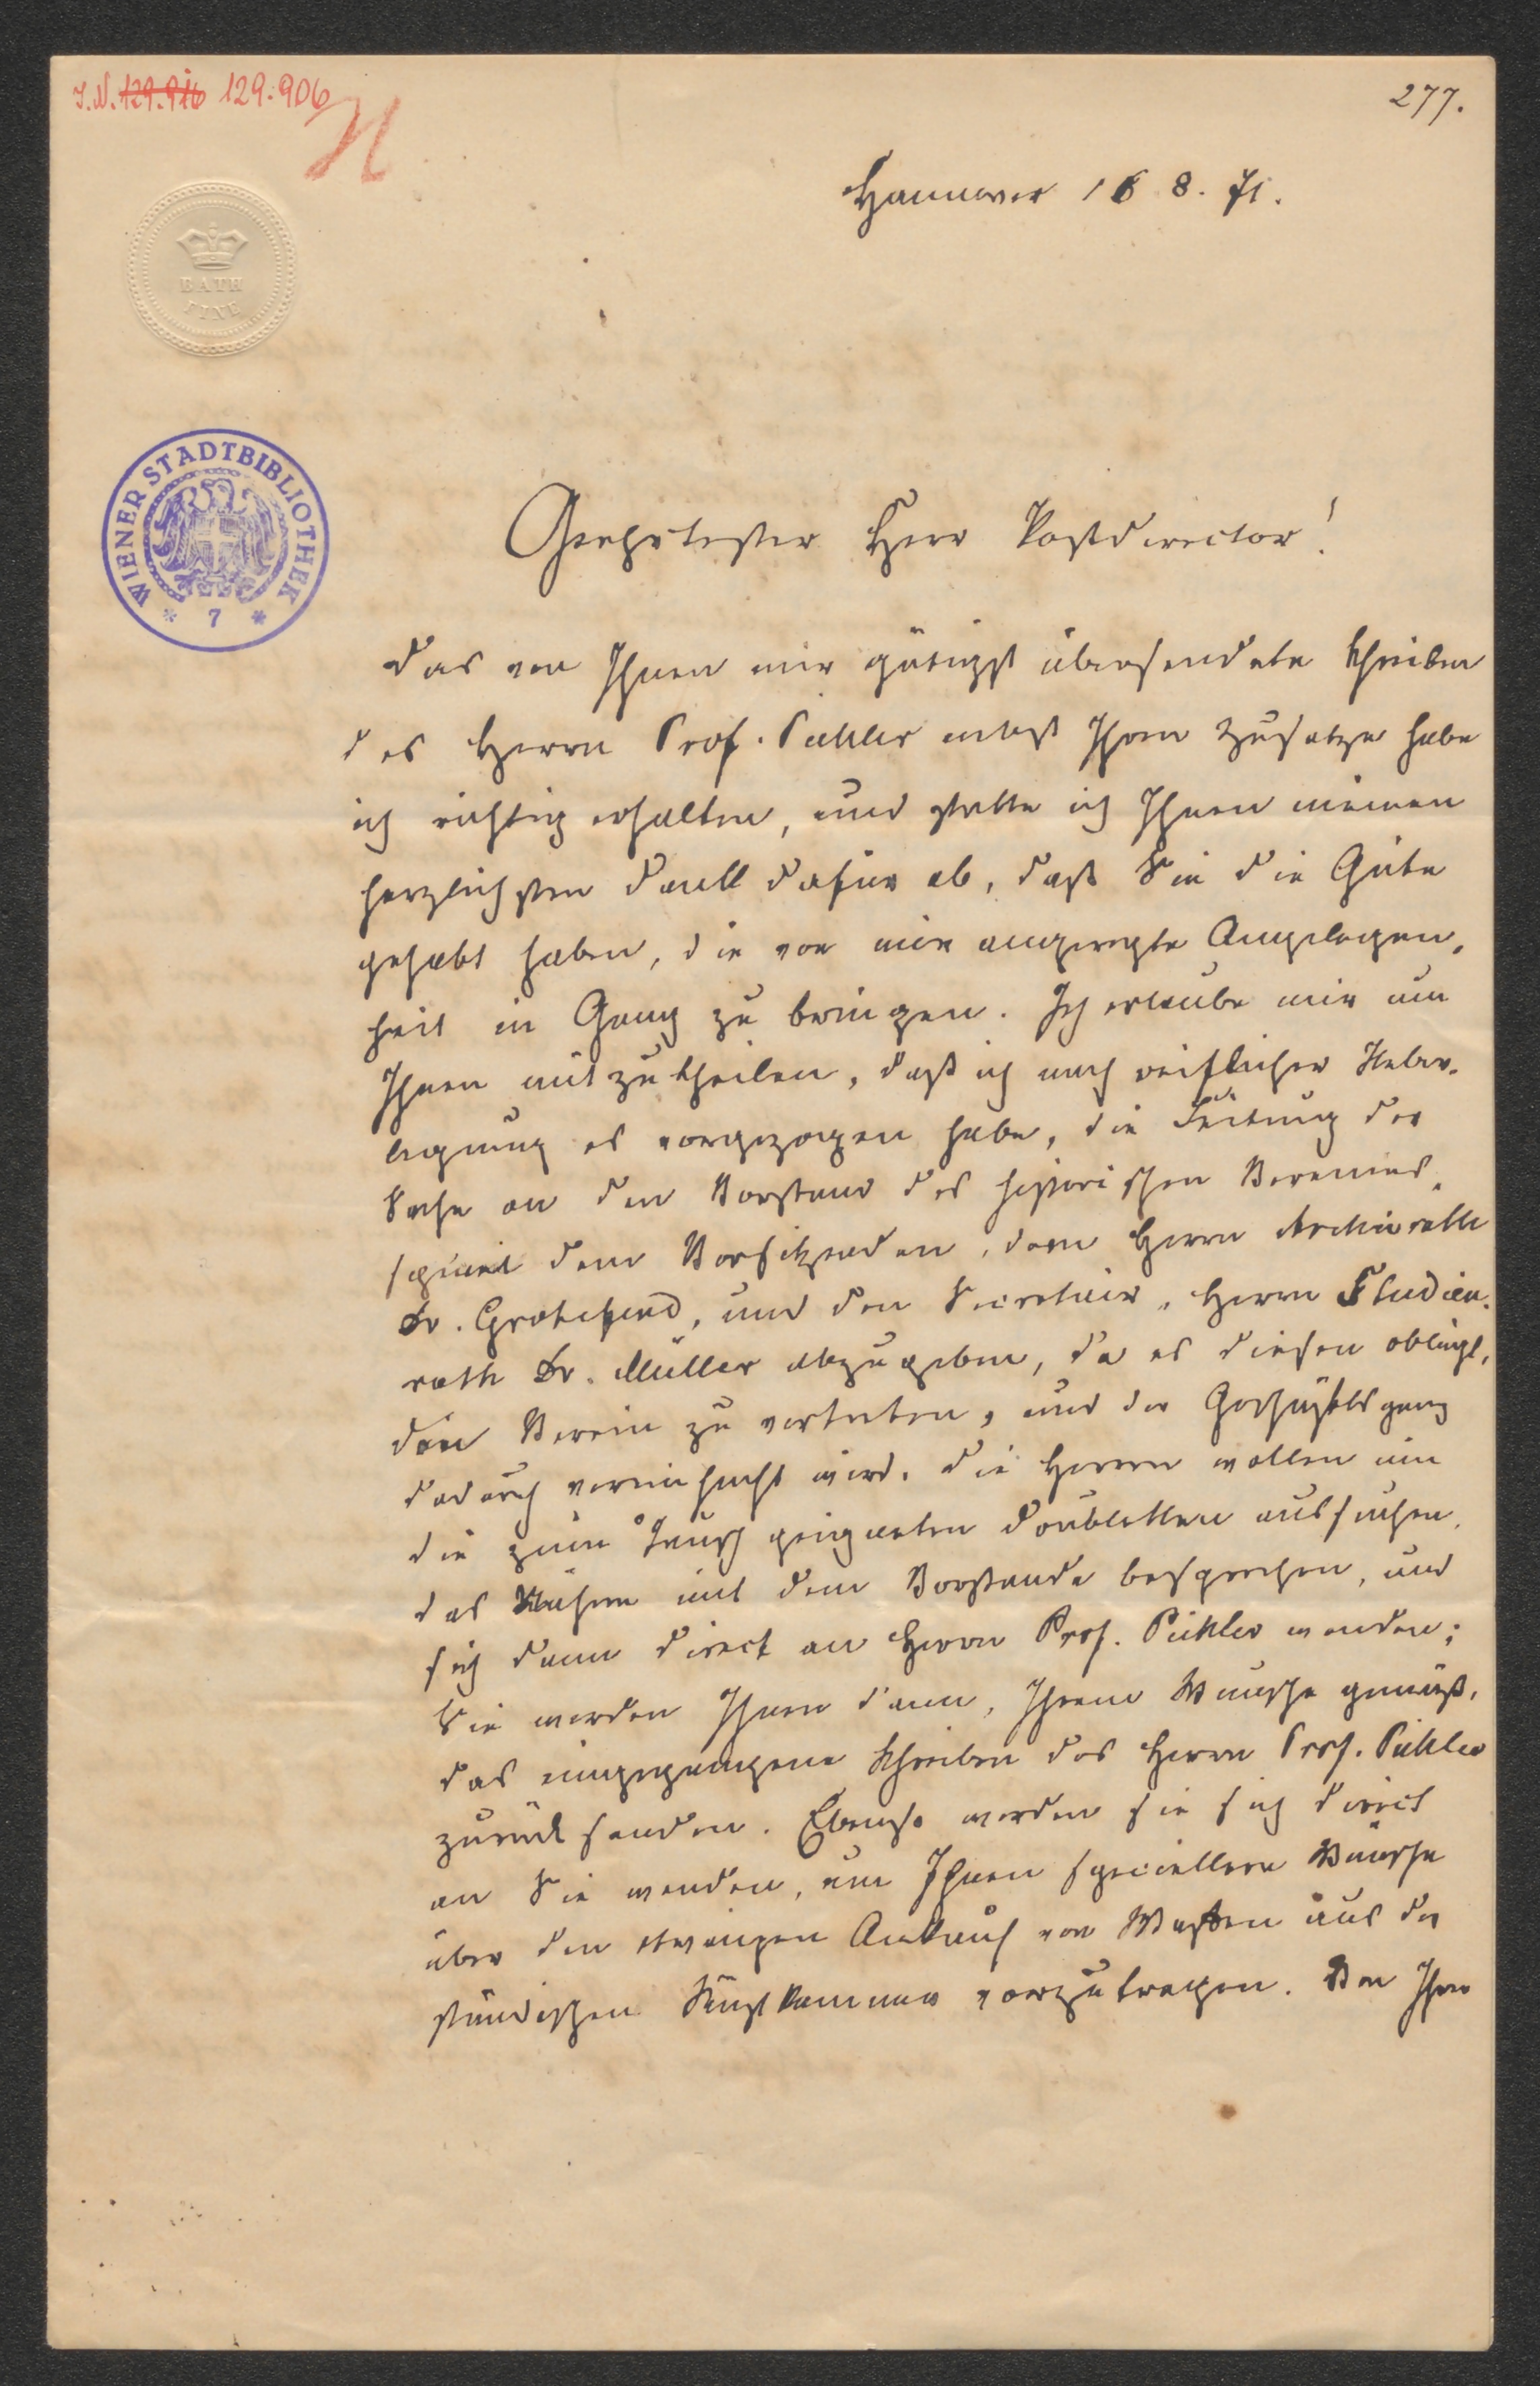 J.N. 129.916 129.906
N
277.
Hannover 16 8. 71.
BATH
FINE
WIENER STADTBIBLIOTHEK
* 7 *
Geehrtester Herr Postdirector!
das von Ihnen mir gütigst übersendete Schreiben
des Herrn Prof. Pichler nebst Ihrem Zusatze habe
ich richtig erhalten, und statte ich Ihnen meinen
herzlichsten Dank dafür ab, daß Sie die Güte
gehabt haben, die von mir angeregte Angelegen-
heit in Gang zu bringen. Ich erlaube mir nun
Ihnen mitzutheilen, daß ich nach reiflicher Ueber-
legung es vorgezogen habe, die Leitung der
Sache an den Vorstand des historischen Vereines,
speciel dem Vorsitzenden, dem Herrn Archivrath
Dr. Grotefend, und den Secretair, Herrn Studien-
rath Dr. Müller abzugeben, da es diesen obliegt,
den Verein zu vertreten, und der Geschäftsgang
dadurch vereinfacht wird. Die Herren wollen nun
die zum Tausch geeigneten Doubletten aussuchen,
das Nähere mit dem Vorstande besprechen, und
sich dann direct an Herrn Prof. Pichler wenden;
Sie werden Ihnen dann, Ihrem Wunsche gemäß,
das eingegangene Schreiben des Herrn Prof. Pichler
zurück senden. Ebenso werden sie sich direct
an Sie wenden, um Ihnen speciellere Wünsche
über den etwaigen Ankauf von Waffen aus der
ständischen Rüstkammer vorzutragen. Von Ihrem